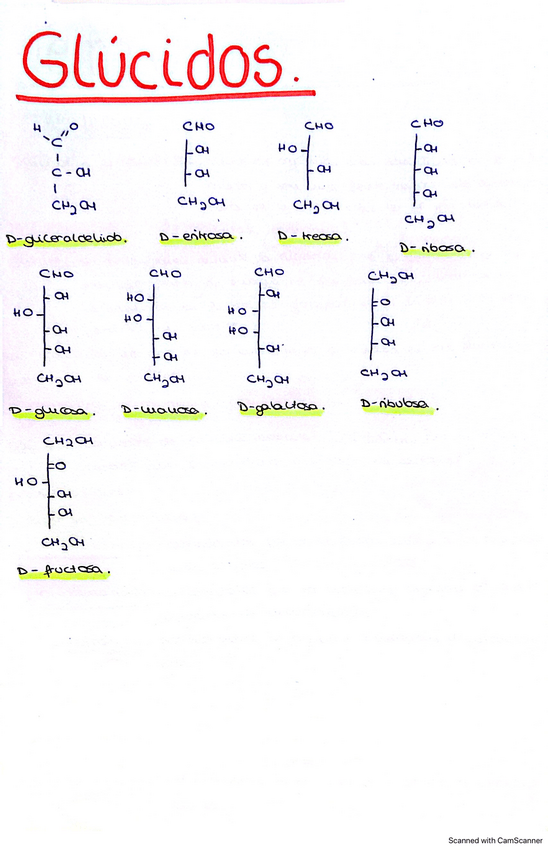 GLÚCIDOS.
H O CHO CHO CHO
C OH HO OH
C-OH OH OH OH
OH
CH₂OH CH₂OH CH₂OH CH₂OH
D-gliceraldehido. D-eritrosa. D-treosa. D-ribosa.
CHO CHO CHO CH₂OH
OH HO OH O
HO HO HO OH
OH OH HO OH
OH OH OH
CH₂OH CH₂OH CH₂OH CH₂OH
D-glucosa. D-manosa. D-galactosa. D-ribulosa.
CH₂OH
O
HO
OH
OH
CH₂OH
D-fructosa.
Scanned with CamScanner